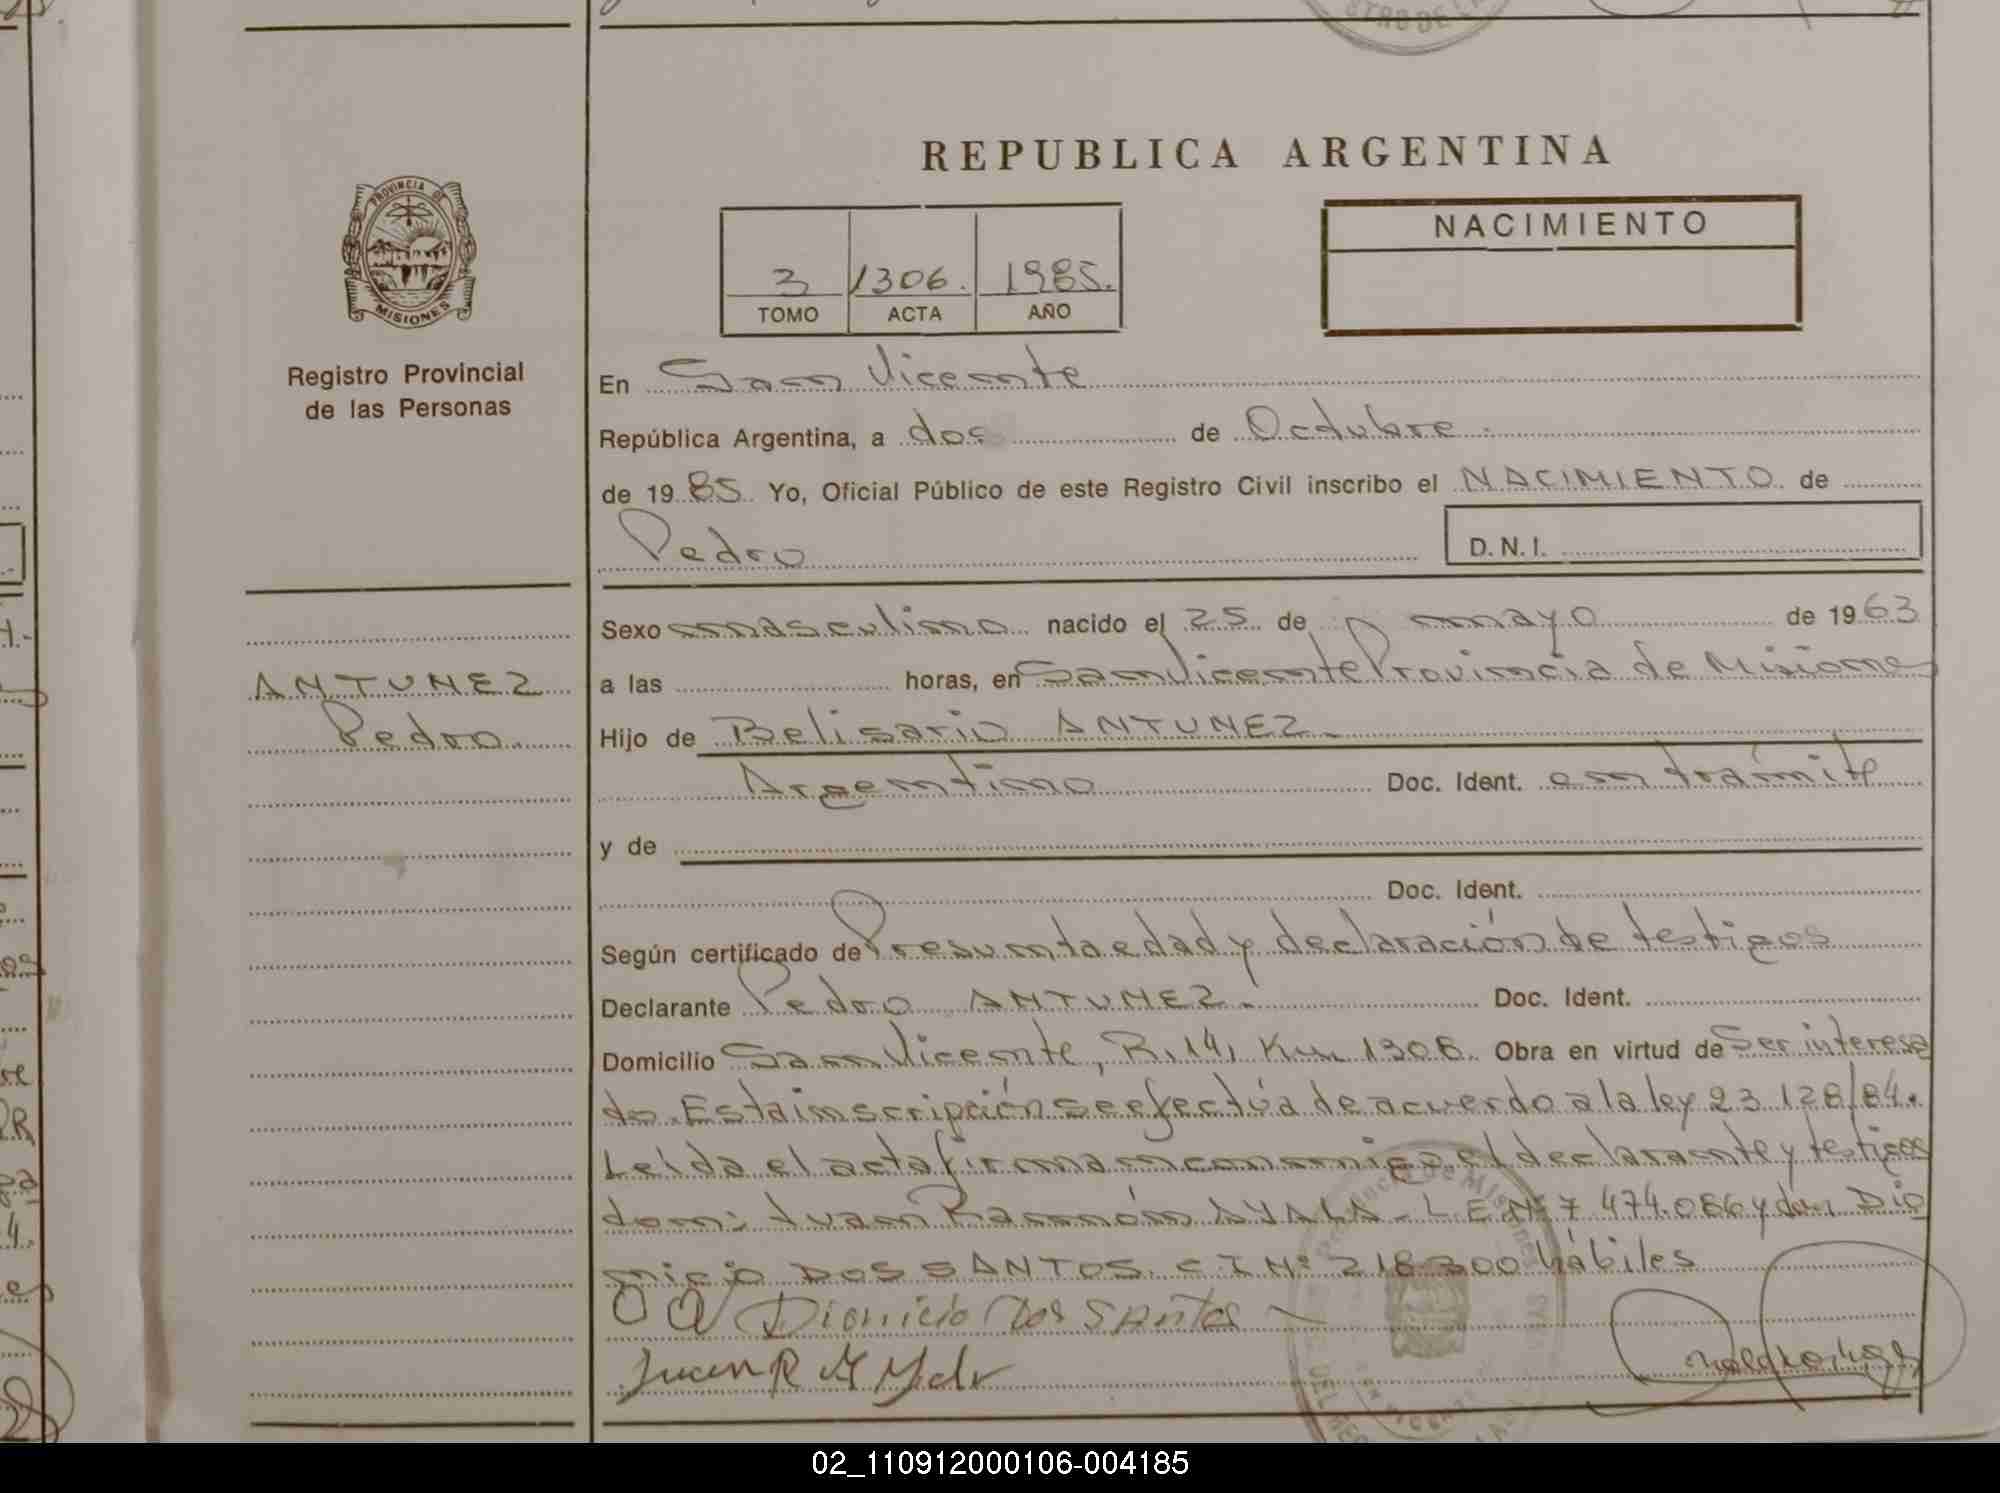 REPUBLICA ARGENTINA
PROVINCIA DE
MISIONES
Registro Provincial
de las Personas
3 1306. 1985.
TOMO ACTA AÑO
NACIMIENTO
En San Vicente
República Argentina, a dos de Octubre.
de 19 85 Yo, Oficial Público de este Registro Civil inscribo el NACIMIENTO de
Pedro
D.N.I.
ANTUNEZ
Pedro.
Sexo masculino nacido el 25 de mayo de 19 63
a las horas, en San Vicente Provincia de Misiones
Hijo de Belisario ANTUNEZ.
Argentino Doc. Ident. en trámite
y de
Doc. Ident.
Según certificado de Presunta edad y declaración de testigos
Declarante Pedro ANTUNEZ. Doc. Ident.
Domicilio San Vicente, R. 14, Km 1308. Obra en virtud de Ser interesa
do. Esta inscripción se efectúa de acuerdo a la ley 23.128/84.
Leída el acta firman conmigo, el declarante y testigos
don: Juan Ramón AYALA - L.E.Nº 7.474.086 y don Dio
nicio DOS SANTOS. C.I.Nº 218300 hábiles
Dionicio Dos Santos
Juan R
02_110912000106-004185